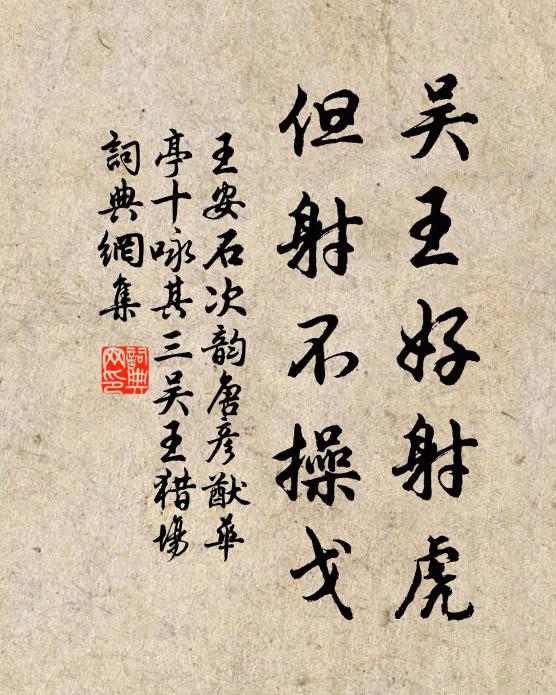 吴王好射虎
但射不操戈
王安石次韵唐彦猷华
亭十咏其三吴王猎场
詞典網集
詞典
网印